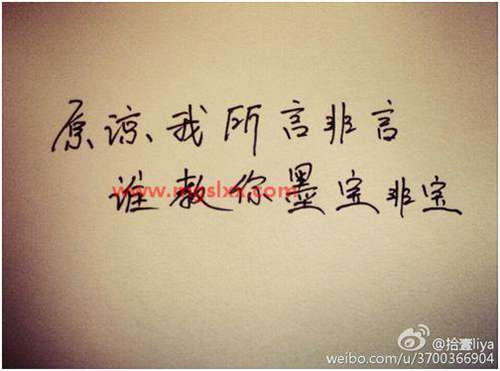 原谅我所言非言
www.mgslxx.com
谁教你墨宝非宝
@拾壹liya
weibo.com/u/3700366904